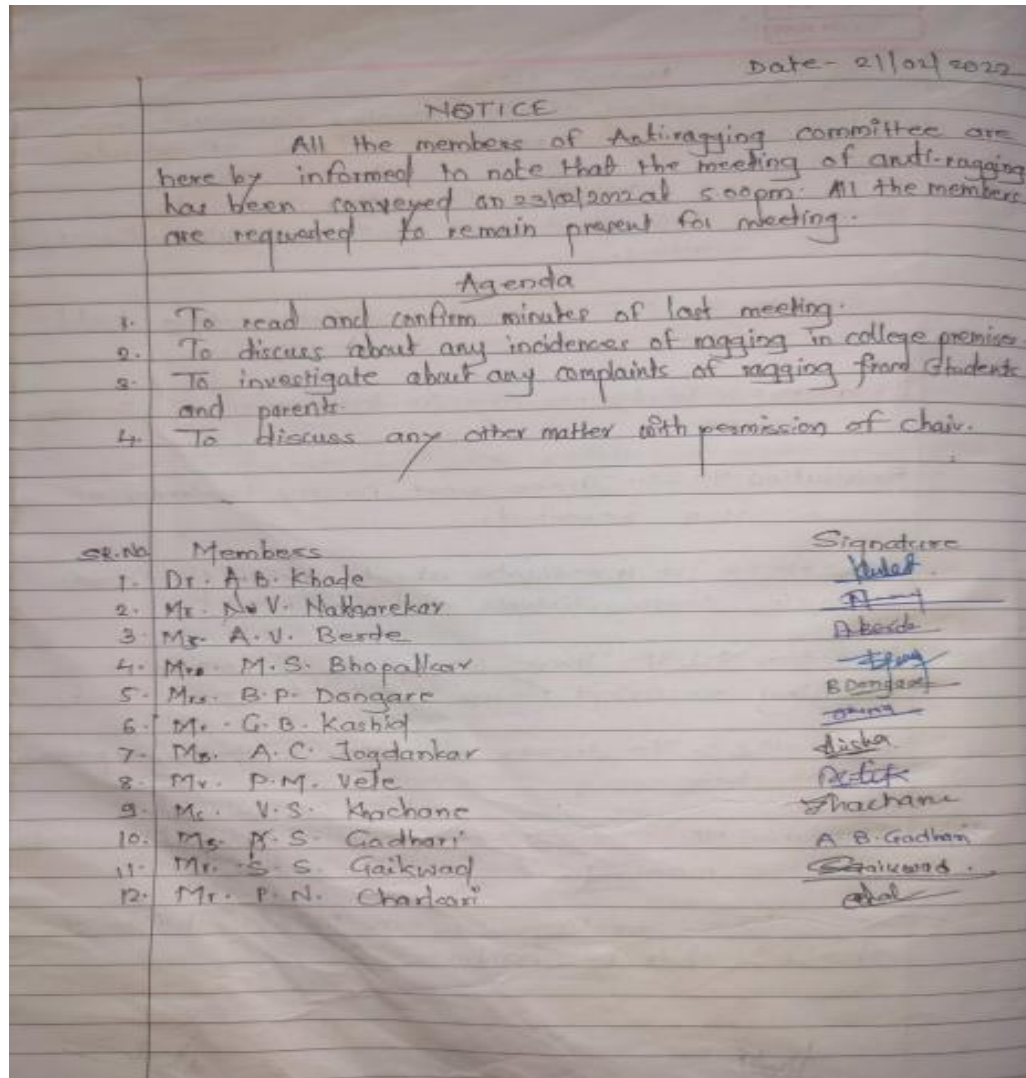 Date- 21/02/2022
NOTICE
All the members of Antiragging committee are
here by informed to note that the meeting of anti-ragging
has been conveyed on 23/02/2022 at 5.00pm. All the members
are requested to remain present for meeting.
Agenda
1. To read and confirm minutes of last meeting.
2. To discuss about any incidences of ragging in college premises
3. To investigate about any complaints of ragging from Students
and parents.
4. To discuss any other matter with permission of chair.
SR.No Members Signature
1. Dr. A.B. Khade
2. Mr. N.V. Nakharekar
3. Mr. A.V. Berde A berde
4. Mrs. M.S. Bhopalkar
5. Mrs. B.P. Dongare B Dongare
6. Mr. G.B. Kashid
7. Ms. A.C. Jogdankar
8. Mr. P.M. Vele
9. V.S. Khochane
10. Ms. S. Gadhari A B. Gadhari
11. Mr. S. S. Gaikwad Gaikwad
12. Mr. P. N. Charkari